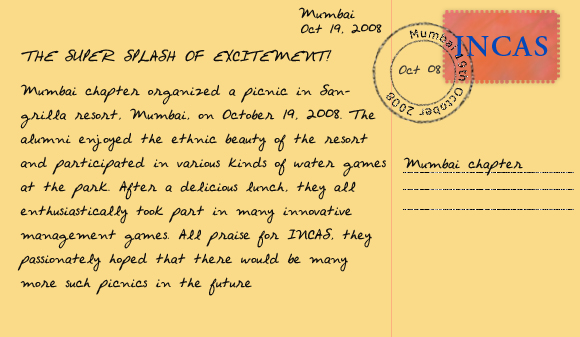 Mumbai
Oct 19, 2008
THE SUPER SPLASH OF EXCITEMENT!
Mumbai chapter organized a picnic in San-
grilla resort, Mumbai, on October 19, 2008. The
alumni enjoyed the ethnic beauty of the resort
and participated in various kinds of water games
at the park. After a delicious lunch, they all
enthusiastically took part in many innovative
management games. All praise for INCAS, they
passionately hoped that there would be many
more such picnics in the future
INCAS
Mumbai 19th October 2008
Oct 08
Mumbai chapter